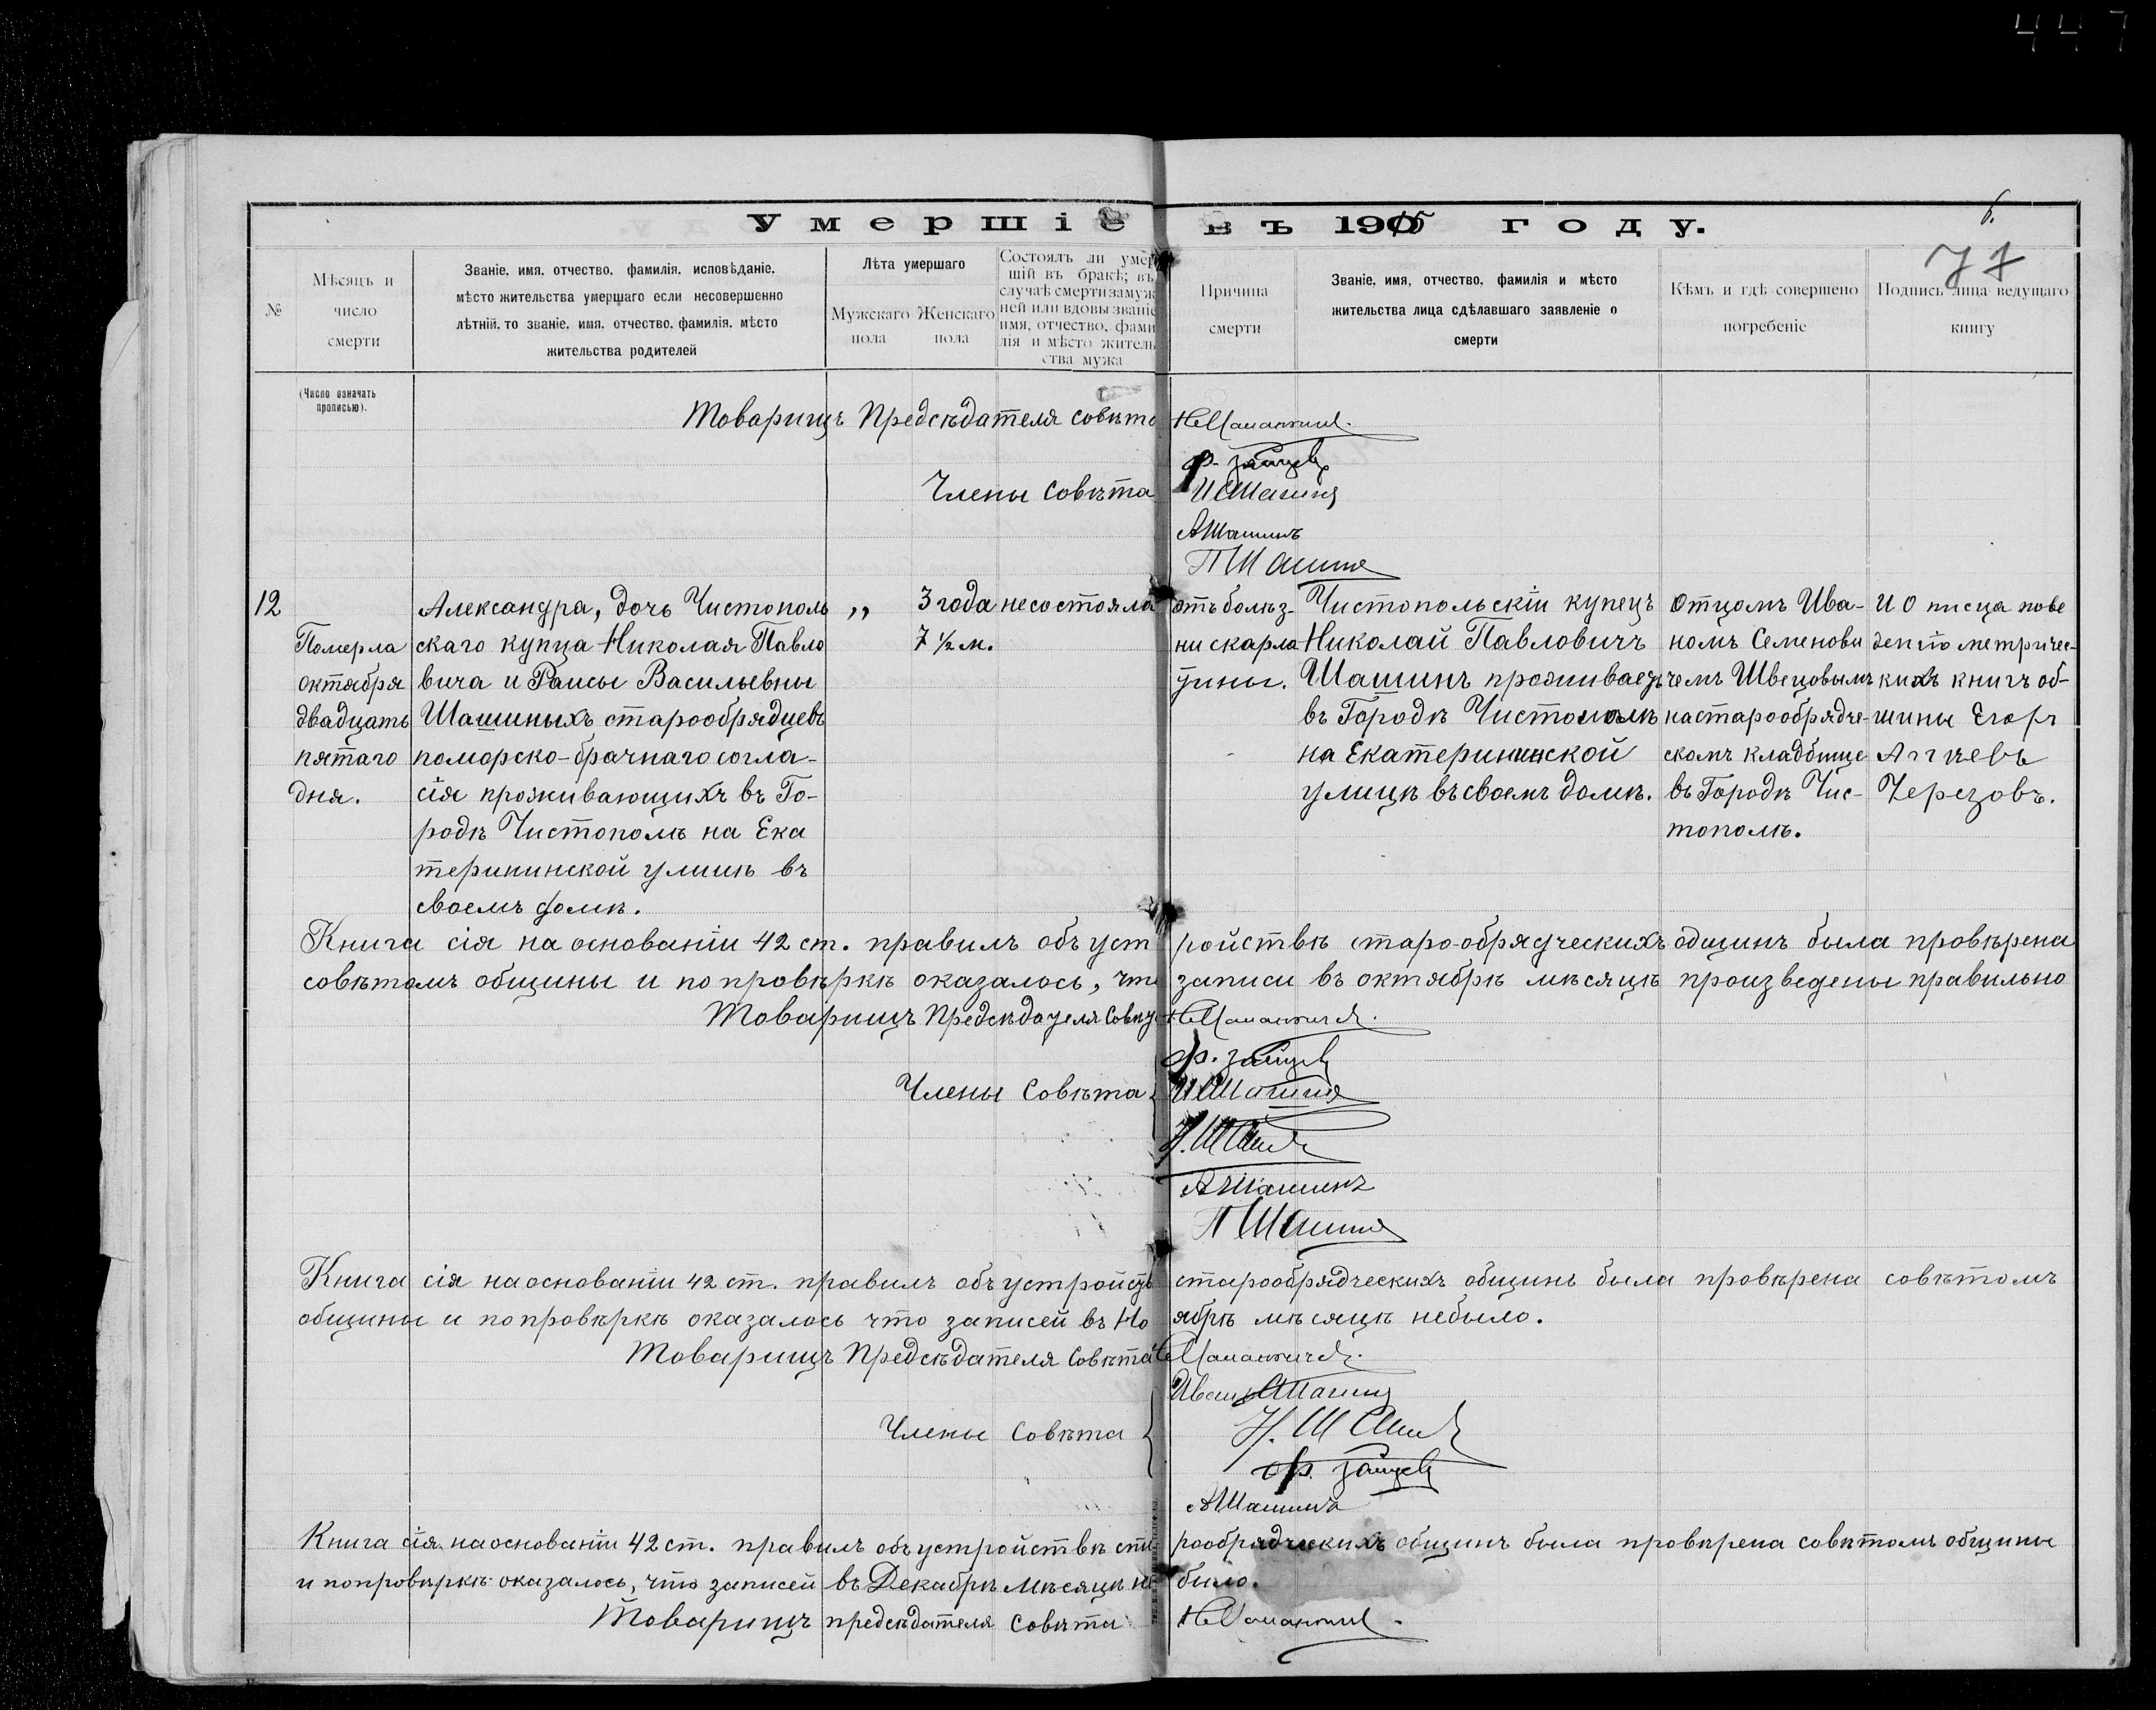 447
Умершіе въ 1905 году.
6.
77
№
Мѣсяцъ и число смерти
Званіе, имя, отчество, фамилія, исповѣданіе,
мѣсто жительства умершаго если несовершенно
лѣтній, то званіе, имя, отчество, фамилія, мѣсто
жительства родителей
Лѣта умершаго
Мужскаго пола
Женскаго пола
Состоялъ ли умер
шій въ бракѣ; въ
случаѣ смерти замуж
ней или вдовы званіе
имя, отчество, фами
лія и мѣсто житель
ства мужа
Причина смерти
Званіе, имя, отчество, фамилія и мѣсто
жительства лица сдѣлавшаго заявленіе о
смерти
Кѣмъ и гдѣ совершено
погребеніе
Подпись лица ведущаго
книгу
(Число означать
прописью).
Товарищъ Предсѣдателя совѣта
Ф. Зайцев
Члены Совѣта
И Шашинъ
А Шашинъ
П Шашинъ
12
Померла
октября
двадцать
пятаго
дня.
Александра, дочь Чистополь
скаго купца Николая Павло
вича и Раисы Васильевны
Шашиныхъ старообрядцевъ
поморско-брачнаго согла-
сія проживающихъ въ Го-
родѣ Чистополѣ на Ека
терининской улицѣ въ
своемъ домѣ.
„
3 года
7 ½ м.
несостояла
отъ болѣз-
ни скарла
тины.
Чистопольскій купецъ
Николай Павловичъ
Шашинъ проживаетъ
въ Городѣ Чистополѣ
на Екатерининской
улицѣ въ своемъ домѣ.
Отцомъ Ива-
номъ Семенови
чемъ Швецовымъ
на старообрядче-
скомъ кладбище
въ Городѣ Чис-
тополѣ.
И О писца пове
денію метричес-
кихъ книгъ об-
щины Егоръ
Черезовъ.
Книга сія на основаніи 42 ст. правилъ объ устройствѣ старо-обрядческихъ общинъ была провѣрена
совѣтомъ общины и по провѣркѣ оказалось, что записи въ октябрѣ мѣсяцѣ произведены правильно
Товарищъ Предсѣдателя Совѣта
Ф. Зайцев
Члены Совѣта
И Шашинъ
Н. Шашинъ
А Шашинъ
П Шашинъ
Книга сія на основаніи 42 ст. правилъ объ устройств старообрядческихъ общинъ была провѣрена совѣтомъ
общины и по провѣркѣ оказалось что записей въ Ноябрѣ мѣсяцѣ небыло.
Товарищъ Предсѣдателя Совѣта
Иван Шашинъ
Члены Совѣта
Н. Шашинъ
Ф. Зайцев
А Шашинъ
Книга сія на основаніи 42 ст. правилъ объ устройствѣ старообрядческихъ общинъ была провѣрена совѣтомъ общины
и по провѣркѣ оказалось, что записей въ Декабрѣ мѣсяцѣ не было.
Товарищъ предсѣдателя Совѣта